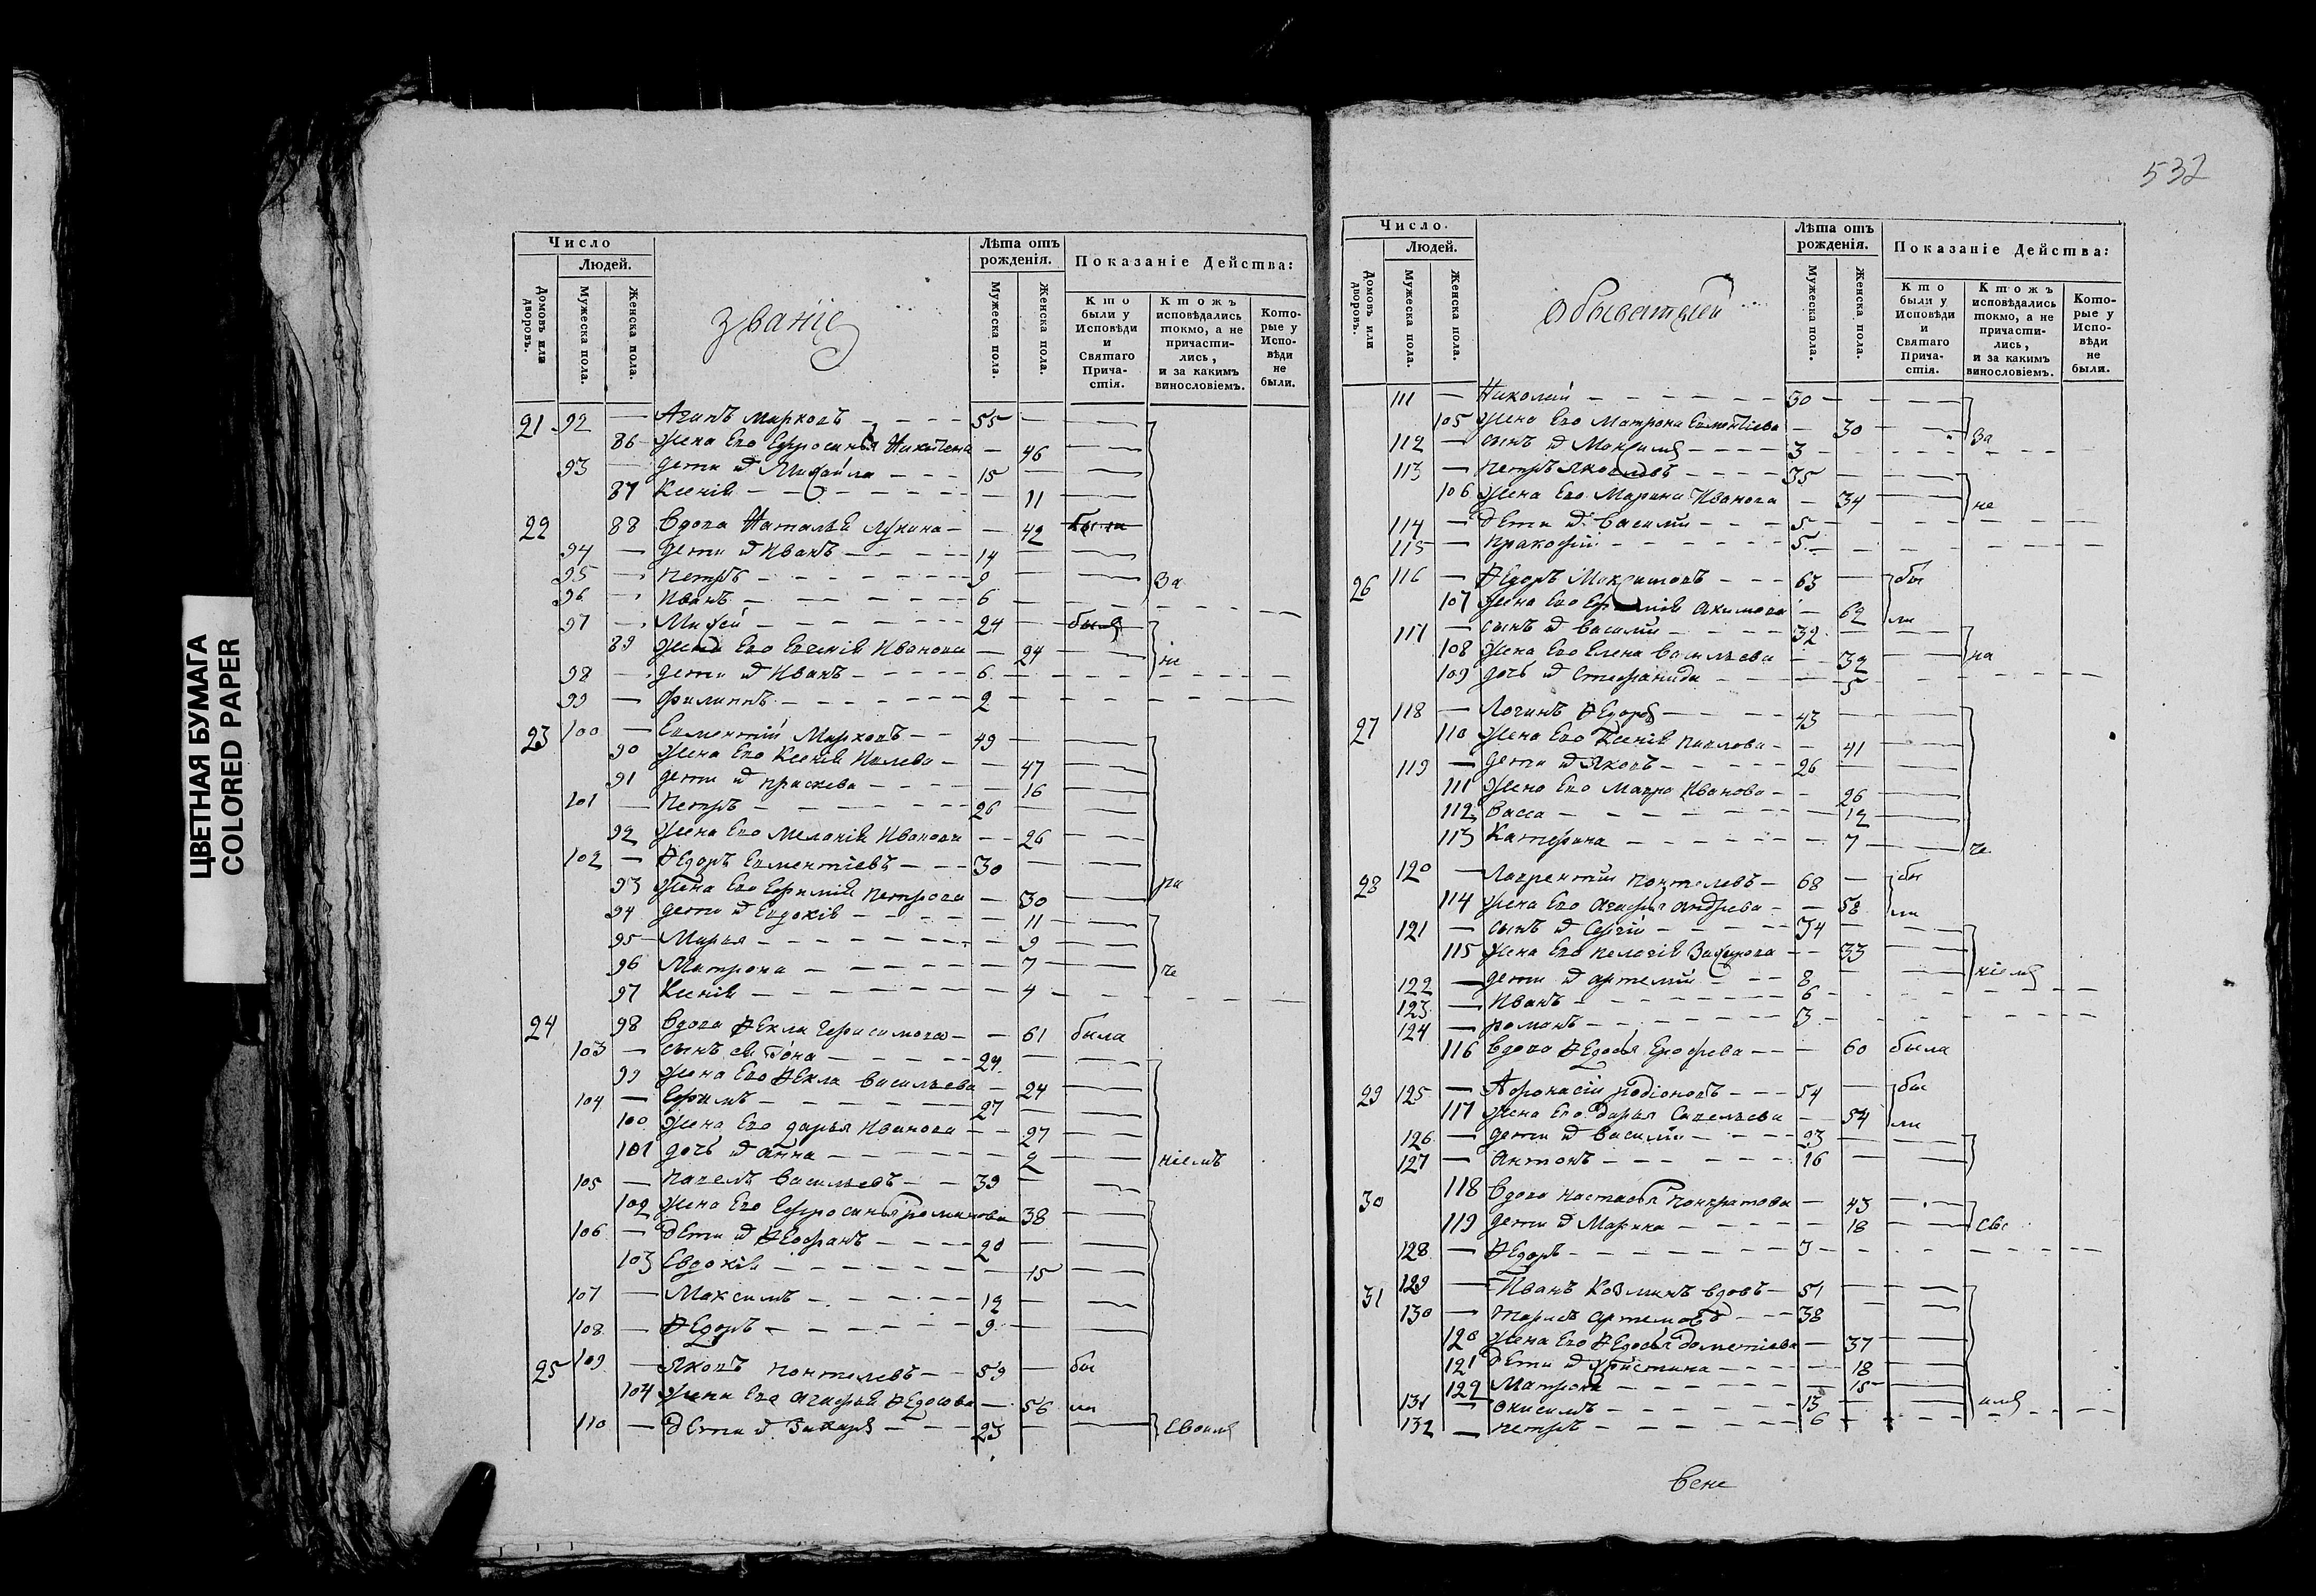 ЦВЕТНАЯ БУМАГА
COLORED PAPER
Число
Людей.
Домовъ или дворовъ.
Мужеска пола.
Женска пола.
званіе
Лѣта отъ рожденія.
Мужеска пола.
Женска пола.
Показаніе Действа:
Кто были у Исповѣди и Святаго Причастія.
Ктожъ исповѣдались токмо, а не причастились, и за какимъ винословіемъ.
Которые у Исповѣди не были.
21 92 — Агипъ Марковъ 55
86 Жена Его Ефросинья 46
93 — дети Михайла 15
87 Ксенія 11
22 88 вдова Наталья Лукина 42 была
94 — дети Иванъ 14
95 Петръ 9 За
96 Иванъ 6
97 24
89 Жена Его Евгенія Иванова 24 не
98 дети Иванъ 6
99 — Филиппъ 2
23 100 — Евментій Марковъ 49
90 Жена Его Ксенія 47
91 дети Праскева 16
101 — Петръ 26
92 Жена Его Меланія Иванова 26
102 — Ѳедоръ Евментіевъ 30
93 Жена Его Ефимія Петрова 30 ра
94 дети Евдокія 11
95 Марья 9
96 Матрона 7 че
97 Ксенія 4
24 98 вдова Ѳекла Герасимова 61 была
103 — сынъ ея Іона 24
99 жена Его Ѳекла Васильева 24
104 — Ефимъ 27
100 Жена Его дарья Иванова 27
101 дочь Анна 2 ніемъ
105 — Павелъ Васильевъ 39
102 Жена Его Ефросинья Романова 38
106 — дети Ѳеофанъ 20
103 Евдокія 15
107 — Максимъ 12
108 — Ѳедоръ 9
25 109 — Яковъ Понтелевъ 59 бы
104 Жена Его Агафья Ѳедосова 56 ли
110 — дети Захаръ 23 своимъ
532
Число.
Людей.
Домовъ или дворовъ.
Мужеска пола.
Женска пола.
обывателей
Лѣта отъ рожденія.
Мужеска пола.
Женска пола.
Показаніе Действа:
Кто были у Исповѣди и Святаго Причастія.
Ктожъ исповѣдались токмо, а не причастились, и за какимъ винословіемъ.
Которые у Исповѣди не были.
111 — Николай 30
105 Жена Его Матрона Евментіева 30 За
112 — сынъ Максимъ 3
113 — Петръ Яковлевъ 35
106 Жена Его Марина Иванова 34 не
114 — дети Василій 5
115 — Пракофій 5
26 116 — Ѳедоръ Максимовъ 63 бы
107 Жена Его Акимова 62 ли
117 — сынъ Василій 32
108 Жена Его Елена Васильева 32 на
109 дочь Стефанида 5
27 118 — Логинъ Ѳедоровъ 43
110 Жена Его Ксенія Павлова 41
119 — дети Яковъ 26
111 Жена Его Мавра Иванова 26
112 Васса 12
113 Катерина 7 че
28 120 — Лаврентій Понтелевъ 68 бы
114 Жена Его Агафья Андреева 58 ли
121 — сынъ Сергій 34
115 Жена Его Пелагія Захарова 33
122 — дети Артемій 8 ніемъ
123 — Иванъ 6
124 — Романъ 3
116 вдова Ѳедосья Ерофеева 60 была
29 125 — Афонасій Родіоновъ 54 бы
117 Жена Его Дарья Савельева 54 ли
126 — дети Василій 23
127 — Антонъ 16
30 118 вдова Настасья Понкратова 43
119 дети Марина 18 сво
128 — Ѳедоръ 3
31 129 — Иванъ Козминъ вдовъ 51
130 — Тарасъ Артемовъ 38
120 Жена Его Ѳедосья Дометіева 37
121 дети Христина 18
122 Матрона 15
131 — Онисимъ 13 имъ
132 — Петръ 6
вене